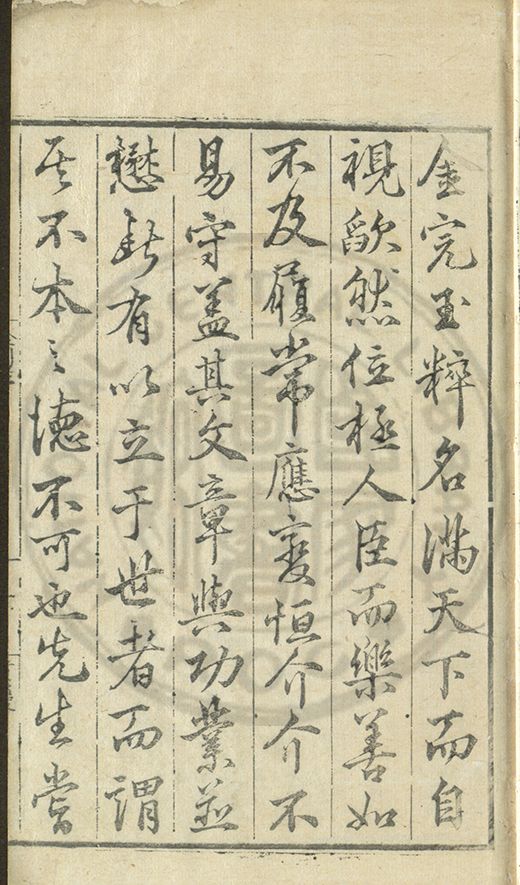 金完玉粹名滿天下而自
視歉然位極人臣而樂善如
不及履常應變恒介介不
易守蓋其文章與功業並
懋斯有以立于世者而謂
其不本之德不可也先生嘗